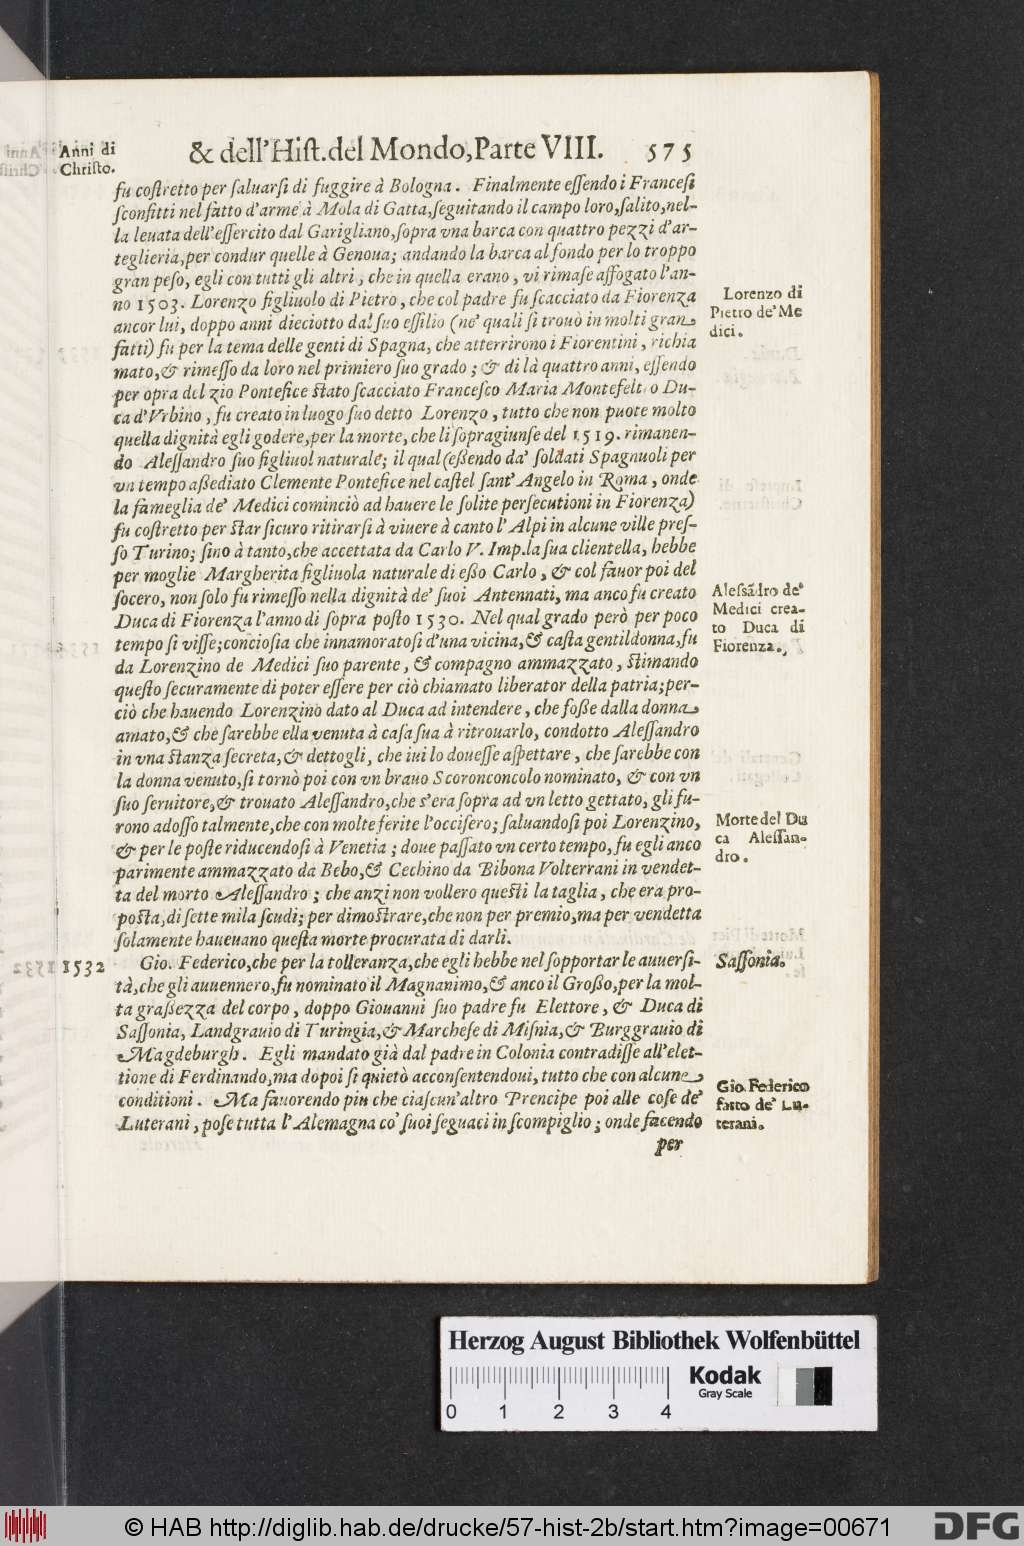 Anni di
Christo.
& dell'Hist. del Mondo, Parte VIII. 575
fu costretto per saluarsi di fuggire à Bologna. Finalmente essendo i Francesi
sconfitti nel fatto d'arme à Mola di Gatta, seguitando il campo loro, salito, nel-
la leuata dell'essercito dal Garigliano, sopra vna barca con quattro pezzi d'ar-
teglieria, per condur quelle à Genoua; andando la barca al fondo per lo troppo
gran peso, egli con tutti gli altri, che in quella erano, vi rimase affogato l'an-
no 1503. Lorenzo figliuolo di Pietro, che col padre fu scacciato da Fiorenza
ancor lui, doppo anni dieciotto dal suo essilio (ne' quali si trouò in molti gran
fatti) fu per la tema delle genti di Spagna, che atterrirono i Fiorentini, richia
mato, & rimesso da loro nel primiero suo grado; & di là quattro anni, essendo
per opra del zio Pontefice stato scacciato Francesco Maria Montefelt o Du-
ca d'Vrbino, fu creato in luogo suo detto Lorenzo, tutto che non puote molto
quella dignità egli godere, per la morte, che li sopragiunse del 1519. rimanen-
do Alessandro suo figliuol naturale; il qual (essendo da' soldati Spagnuoli per
vn tempo assediato Clemente Pontefice nel castel sant' Angelo in Roma, onde
la fameglia de' Medici cominciò ad hauere le solite persecutioni in Fiorenza)
fu costretto per star sicuro ritirarsi à viuere à canto l' Alpi in alcune ville pres-
so Turino; sino à tanto, che accettata da Carlo V. Imp. la sua clientella, hebbe
per moglie Margherita figliuola naturale di esso Carlo, & col fauor poi del
socero, non solo fu rimesso nella dignità de' suoi Antennati, ma anco fu creato
Duca di Fiorenza l'anno di sopra posto 1530. Nel qual grado però per poco
tempo si visse; conciosia che innamoratosi d'una vicina, & casta gentildonna, fu
da Lorenzino de Medici suo parente, & compagno ammazzato, stimando
questo securamente di poter essere per ciò chiamato liberator della patria; per-
ciò che hauendo Lorenzino dato al Duca ad intendere, che fosse dalla donna
amato, & che sarebbe ella venuta à casa sua à ritrouarlo, condotto Alessandro
in vna stanza secreta, & dettogli, che iui lo douesse aspettare, che sarebbe con
la donna venuto, si tornò poi con vn brauo Scoronconcolo nominato, & con vn
suo seruitore, & trouato Alessandro, che s'era sopra ad vn letto gettato, gli fu-
rono adosso talmente, che con molte ferite l'occisero; saluandosi poi Lorenzino,
& per le poste riducendosi à Venetia; doue passato vn certo tempo, fu egli anco
parimente ammazzato da Bebo, & Cechino da Bibona Volterrani in vendet-
ta del morto Alessandro; che anzi non vollero questi la taglia, che era pro-
posta, di sette mila scudi; per dimostrare, che non per premio, ma per vendetta
solamente haueuano questa morte procurata di darli.
1532 Gio. Federico, che per la tolleranza, che egli hebbe nel sopportar le auuersi-
tà, che gli auuennero, fu nominato il Magnanimo, & anco il Grosso, per la mol-
ta grassezza del corpo, doppo Giouanni suo padre fu Elettore, & Duca di
Sassonia, Landgrauio di Turingia, & Marchese di Misnia, & Burggrauio di
Magdeburgh. Egli mandato già dal padre in Colonia contradisse all'elet-
tione di Ferdinando, ma dopoi si quietò acconsentendoui, tutto che con alcune
conditioni. Ma fauorendo piu che ciascun'altro Prencipe poi alle cose de'
Luterani, pose tutta l'Alemagna co' suoi seguaci in scompiglio; onde facendo
per
Lorenzo di
Pietro de' Me
dici.
Alessãdro de'
Medici crea-
to Duca di
Fiorenza.
Morte del Du
ca Alessan-
dro.
Sassonia.
Gio. Federico
fatto de' Lu-
terani.
Herzog August Bibliothek Wolfenbüttel
0 1 2 3 4
Kodak
Gray Scale
© HAB http://diglib.hab.de/drucke/57-hist-2b/start.htm?image=00671
DFG